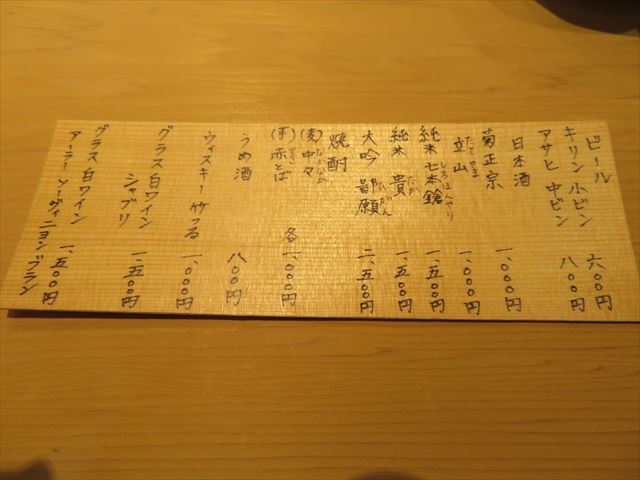 ビール
キリン 小ビン 六〇〇円
アサヒ 中ビン 八〇〇円
日本酒
菊正宗 一、〇〇〇円
立山 たてやま 一、〇〇〇円
純米 七本鎗 しちほんやり 一、五〇〇円
純米 貴 たか 一、五〇〇円
大吟 鄙願 ひがん 二、五〇〇円
焼酎
(麦) 中々 なかなか
(芋) 赤とば 各 一、〇〇〇円
うめ酒 八〇〇円
ウィスキー 竹づる 一、〇〇〇円
グラス白ワイン
シャブリ 一、五〇〇円
グラス白ワイン
アーラー ソーヴィニヨンブラン 一、五〇〇円